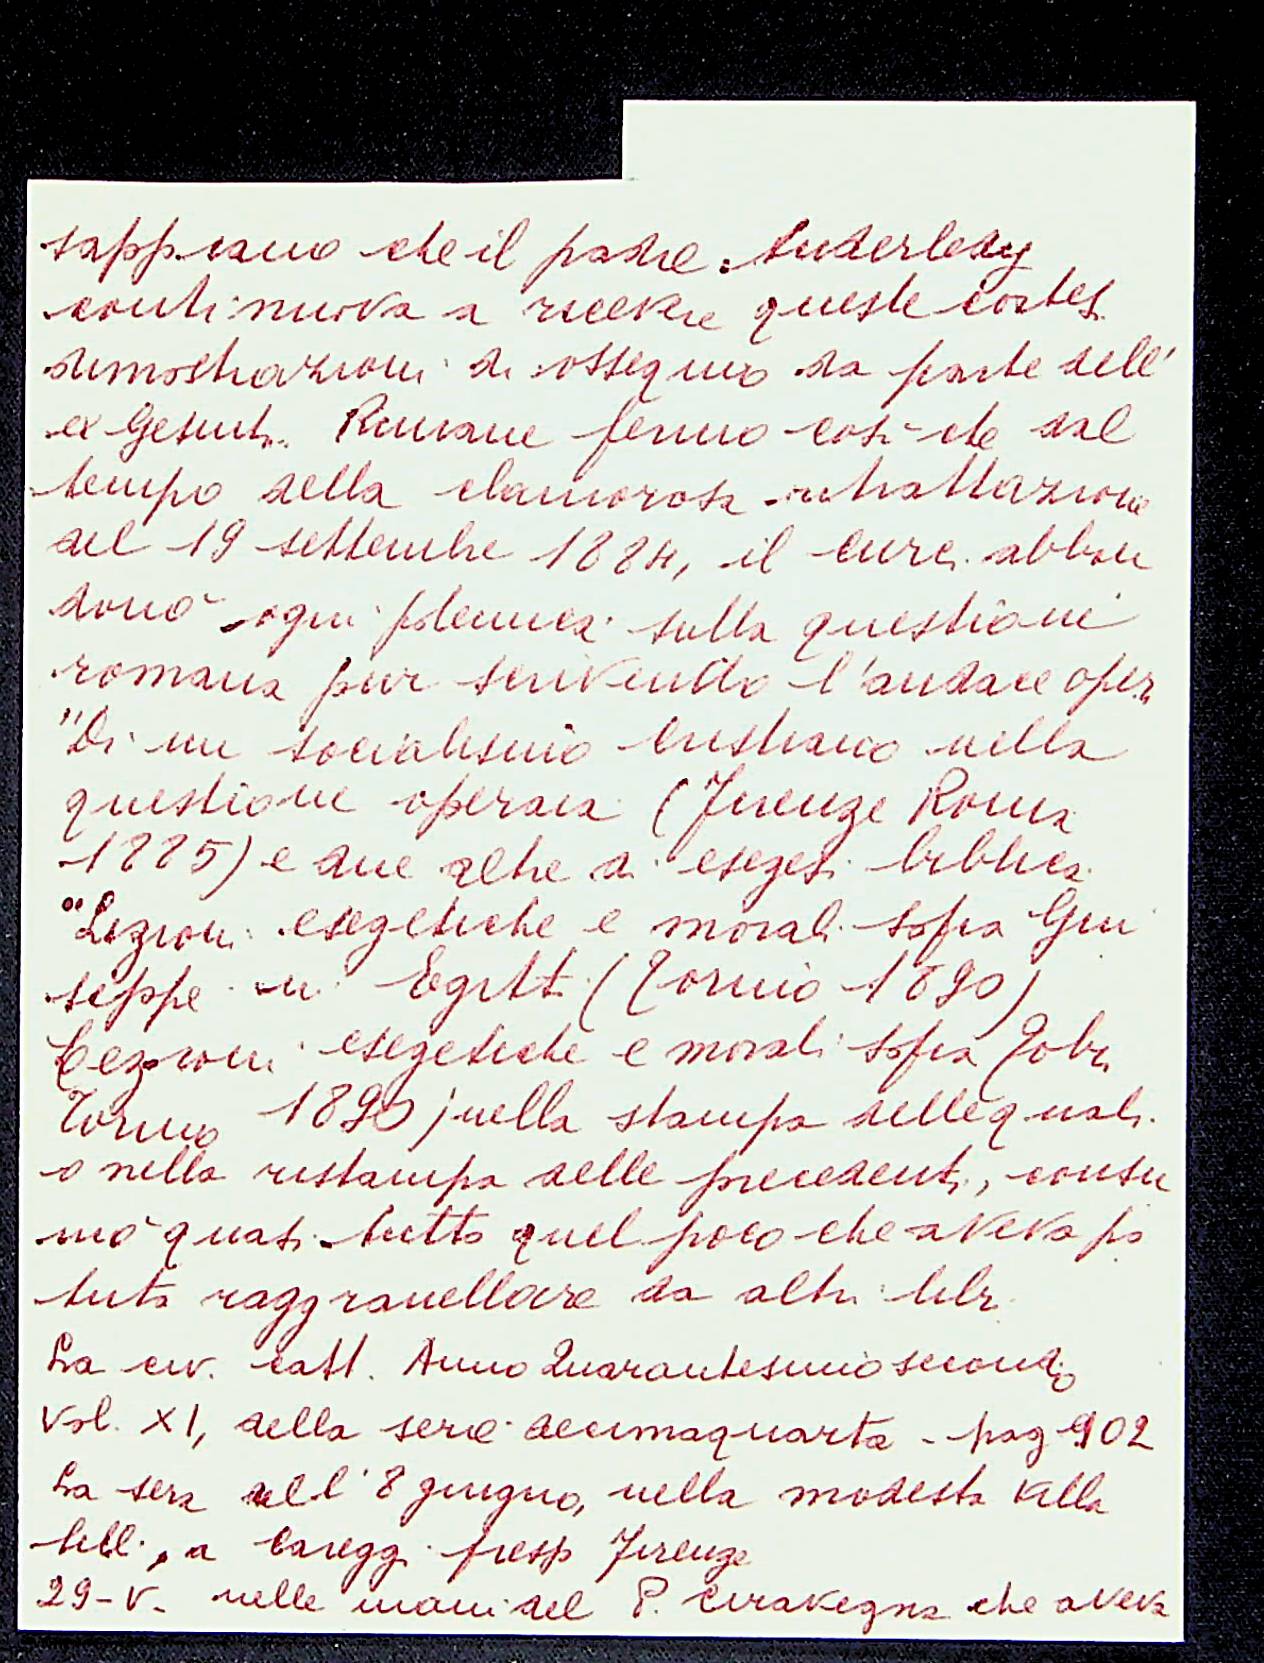 sappiamo che il padre Anderledy
continuava a ricevere queste cortesi
dimostrazioni di ossequio da parte dell'
ex Gesuita. Rimane fermo così che dal
tempo della clamorosa ritrattazione
del 19 settembre 1884, il Curci abban
donò ogni polemica sulla questione
romana pur scrivendo l'audace opera
"Di un socialismo cristiano nella
questione operaia (Firenze Roma
1885) e due altre di esegesi biblica
"Lezioni esegetiche e morali sopra Giu
seppe in Egitto (Torino 1890)
Lezioni esegetiche e morali sopra Tobia
Torino 1890) nella stampa delle quali
o nella ristampa delle precedenti, consu
mò quasi tutto quel poco che aveva po
tuto raggranellare da altri libri
La civ. catt. Anno Quarantesimo secondo
Vol. XI, della serie decimaquarta - pag 102
La sera dell'8 giugno, nella modesta villa
a Careggi presso Firenze
29-V. nelle mani del P. Ciravegna che aveva